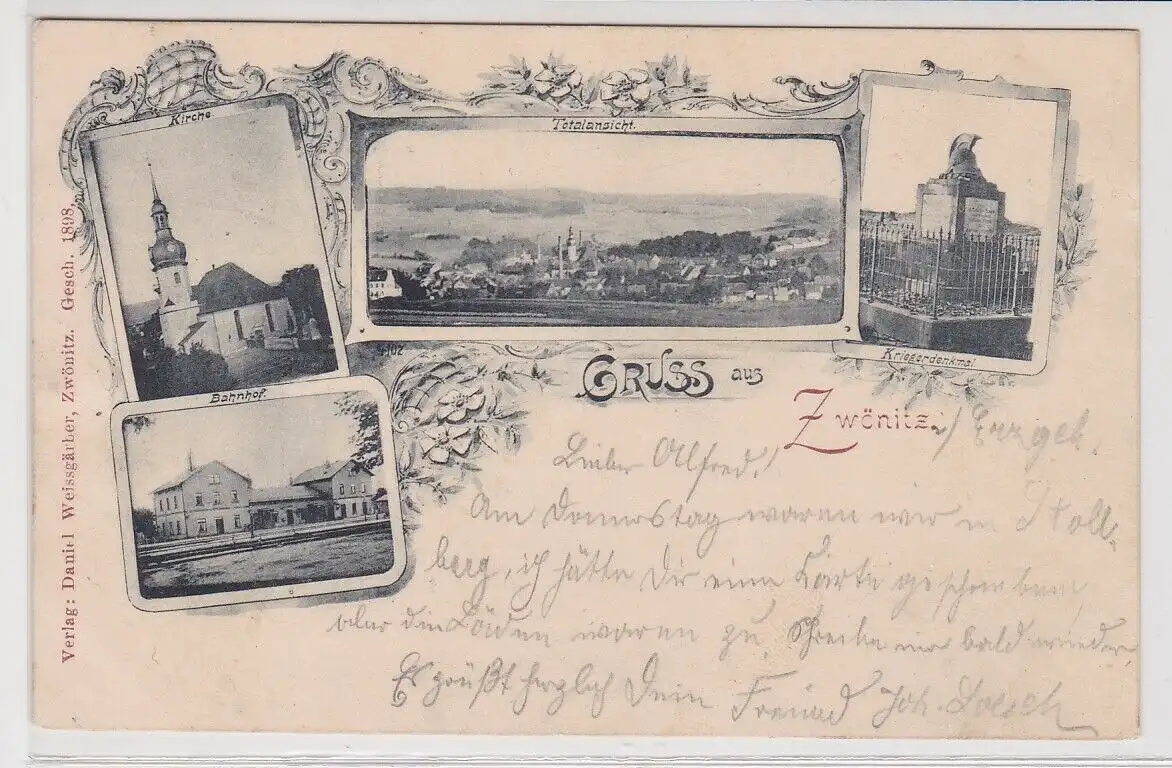 Kirche.
Totalansicht.
Kriegerdenkmal.
Bahnhof.
4102
GRUSS aus
Zwönitz. i/ Erzgeb.
Verlag: Daniel Weissgärber, Zwönitz. Gesch. 1898.
Lieber Alfred!
Am Donnerstag waren wir in Stoll-
berg, ich hätte Dir eine Karte geschrieben,
aber die Läden waren zu. Schreibe mir bald wieder,
Es grüßt herzlich Dein Freund Joh.